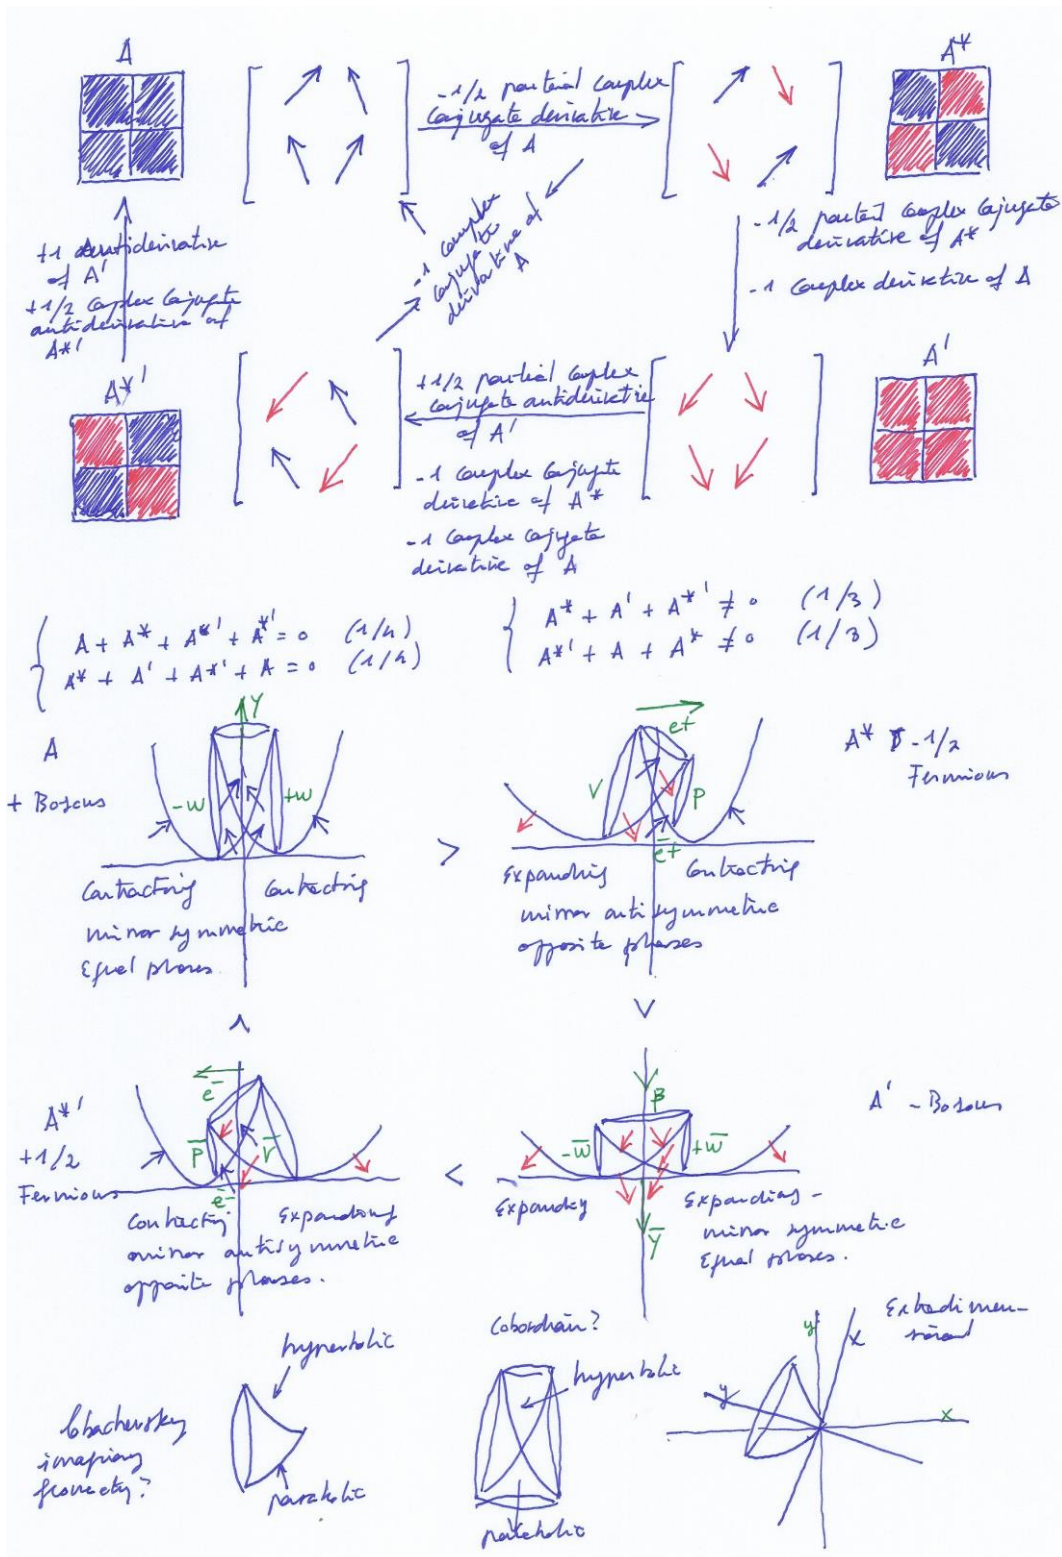 A
A*
-1/2 partial complex
conjugate derivative
of A
-1 complex
conjugate
derivative of
A
+1 antiderivative
of A'
+1/2 complex conjugate
antiderivative of
A*'
-1/2 partial complex conjugate
derivative of A*
-1 complex derivative of A
A*'
A'
+1/2 partial complex
conjugate antiderivative
of A'
-1 complex conjugate
derivative of A*
-1 complex conjugate
derivative of A
A + A* + A*' + A*' = 0 (1/4)
A* + A' + A*' + A = 0 (1/4)
A* + A' + A*' ≠ 0 (1/3)
A*' + A + A* ≠ 0 (1/3)
A
+ Bosons
Y
-W
+W
Contracting
Contracting
mirror symmetric
Equal phases
>
A* -1/2
Fermions
e+
V
P
e+
Expanding
Contracting
mirror antisymmetric
opposite phases
A*'
+1/2
Fermions
e-
P
V
e-
Contracting
Expanding
mirror antisymmetric
opposite phases.
<
A' - Bosons
β
-W
+W
Y
Expanding
Expanding -
mirror symmetric
Equal phases.
Lobachevsky
imaginary
geometry?
hyperbolic
parabolic
Cobordian?
hyperbolic
parabolic
Extradimen-
sional
y
x
y
x